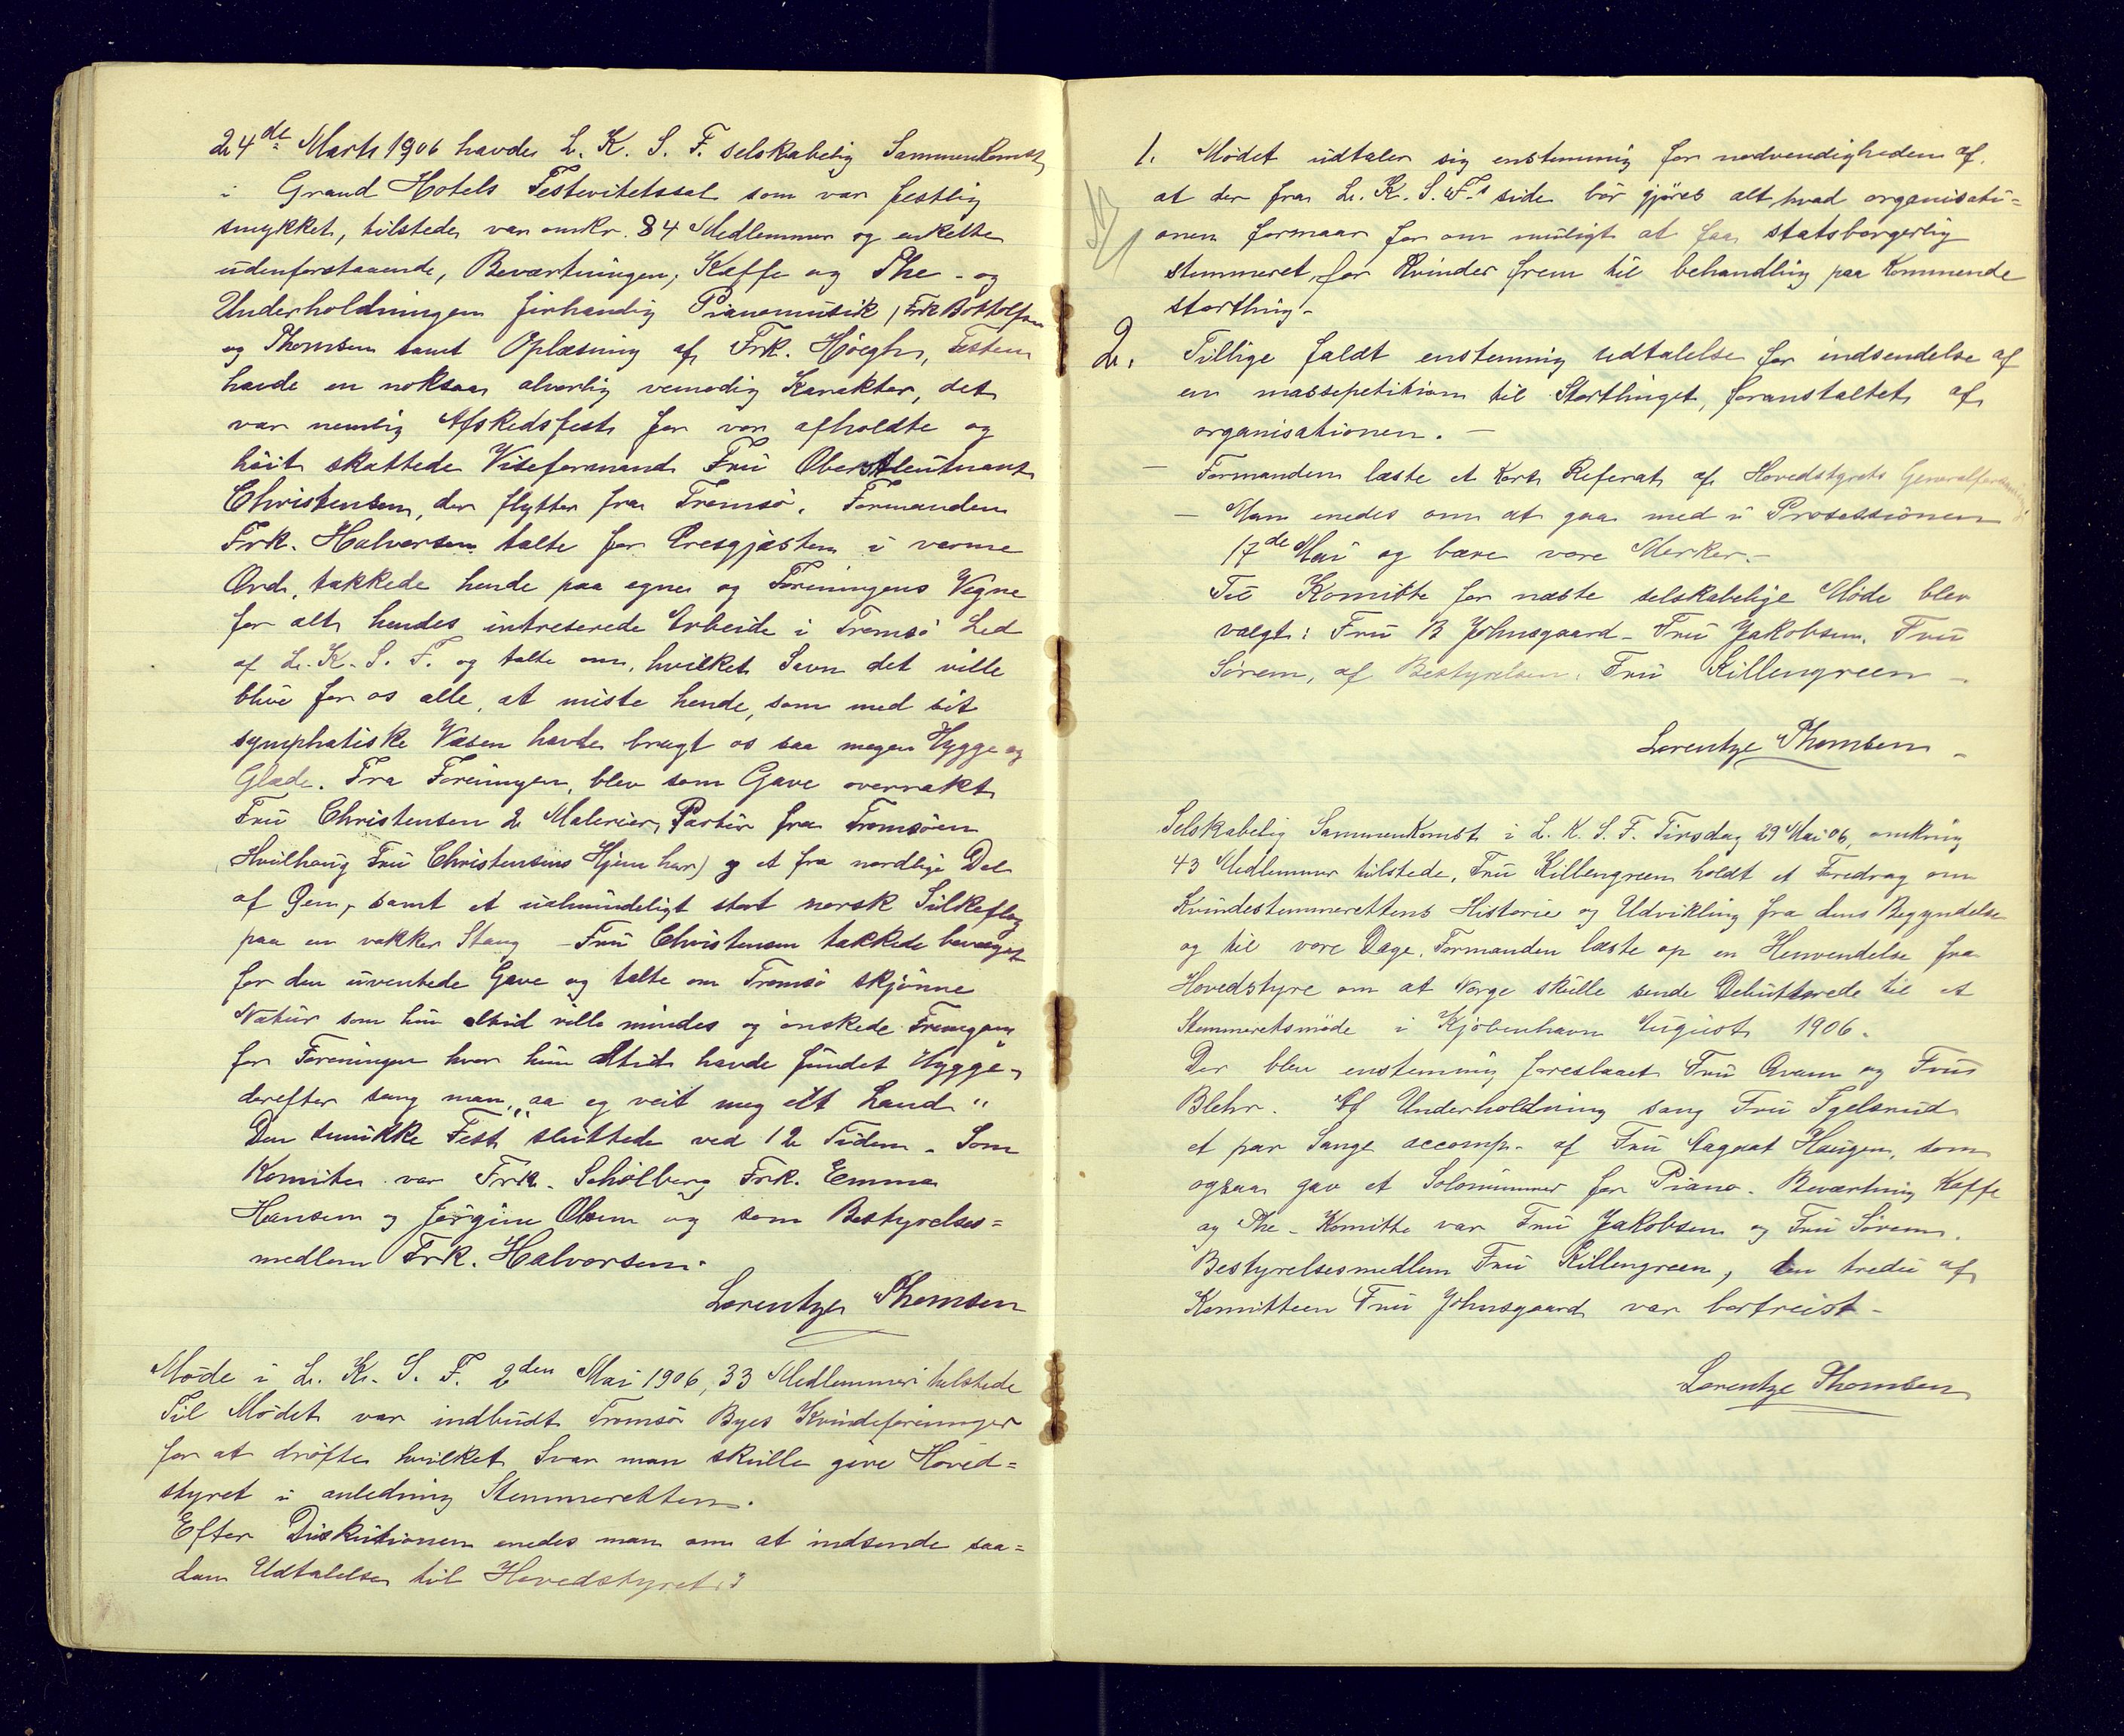 24de Marts 1906 havde L. K. S. F. selskabelig Sammenkomst
i Grand Hotels Festivitetssal som var festlig
smykket, tilstede var omkr. 84 Medlemmer og enkelte
udenforstaaende, Beværtningen, Kaffe og The - og
Underholdningen firhændig Pianomusik, Frk Bottolfsen
og Thomsen samt Oplæsning af Frk. Höegh, Festen
havde en noksaa alvorlig vemodig Karakter, det
var nemlig Afskedsfest for vor afholdte og
höit skattede Viseformand Fru Oberstleutnant
Christensen, der flytter fra Tromsö. Formanden
Frk. Halvorsen talte for Æresgjæsten i varme
Ord, takkede hende paa egne og Foreningens Vegne
for alt hendes intreserede Arbeide i Tromsö Led
af L. K. S. F. og talte om, hvilket Savn det ville
blive for os alle, at miste hende, som med sit
symphatiske Væsen havde bragt os saa megen Hygge og
Glæde. Fra Foreningen, blev som Gave overrakt
Fru Christensen 2 Malerier, Partier fra Tromsöen
(Hvilhaug Fru Christensens Hjem her) og et fra nordlige Del
af Øen, samt et ualmindeligt stort norsk Silkeflag
paa en vakker Stang - Fru Christensen takkede bevæget
for den uventede Gave og talte om Tromsö skjönne
Natur som hun altid ville mindes og önskede Fremgang
for Foreningen hvor hun altid havde fundet Hygge,
derefter sang man „aa eg veit meg eit Land"
Den smukke Fest sluttede ved 12 Tiden. Som
Komite var Frk. Schölberg Frk. Emma
Hansen og Jörgine Olsen og som Bestyrelses=
medlem Frk. Halvorsen.
Lorentze Thomsen
Möde i L. K. S. F. 2den Mai 1906, 33 Medlemmer tilstede
Til Mödet var indbudt Tromsö Byes Kvindeforeninger
for at dröfte hvilket Svar man skulle give Hoved=
styret i anledning Stemmeretten.
Efter Diskutionen enedes man om at indsende saa=
dan Udtalelse til Hovedstyret:
1. Mödet udtaler sig enstemmig for nødvendigheden af
at der fra L. K. S. F.s side bör gjöres alt hvad organisati=
onen formaar for om muligt at faa statsborgerlig
stemmeret for Kvinder frem til behandling paa kommende
storthing-
2. Tillige faldt enstemmig udtalelse for indsendelse af
en massepetition til Storthinget, foranstaltet af
organisationen. -
- Formanden læste et kort Referat af Hovedstyrets Generalforsamling
- Man enedes om at gaa med i Prosessionen
17de Mai og bære vore Merker.-
Til Komitte for næste selskabelige Möde blev
valgt: Fru B Johnsgaard - Fru Jakobsen. Fru
Sörem, af Bestyrelsen: Fru Killengreen -
Lorentze Thomsen -
Selskabelig Sammenkomst i L. K. S. F. Tirsdag 29 Mai 06, omkring
43 Medlemmer tilstede, Fru Killengreen holdt et Foredrag om
Kvindestemmerettens Historie og Udvikling fra dens Begyndelse
og til vore Dage. Formanden læste op en Henvendelse fra
Hovedstyre om at Norge skulle sende Debutterede til et
Stemmeretsmöde i Kjöbenhavn August 1906.
Der blev enstemmig foreslaaet Fru Qvam og Fru
Blehr. Af Underholdning sang Fru Igelsrud
et par Sange accomp. af Fru Aagaat Haugen, som
ogsaa gav et Solonummer for Piano. Beværtning Kaffe
og The - Komitte var Fru Jakobsen og Fru Sorem.
Bestyrelsesmedlem Fru Killengreen, den tredie af
Komitteen Fru Johnsgaard var bortreist -
Lorentze Thomsen